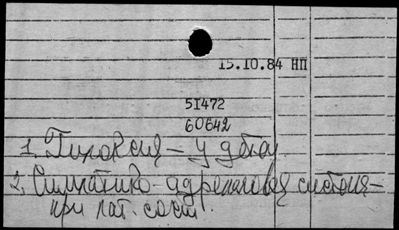 15.10.84 НП
51472
60642
1. Гипоксия – у детей
2. Симпатико-адреналовая система –
при пат. сост.